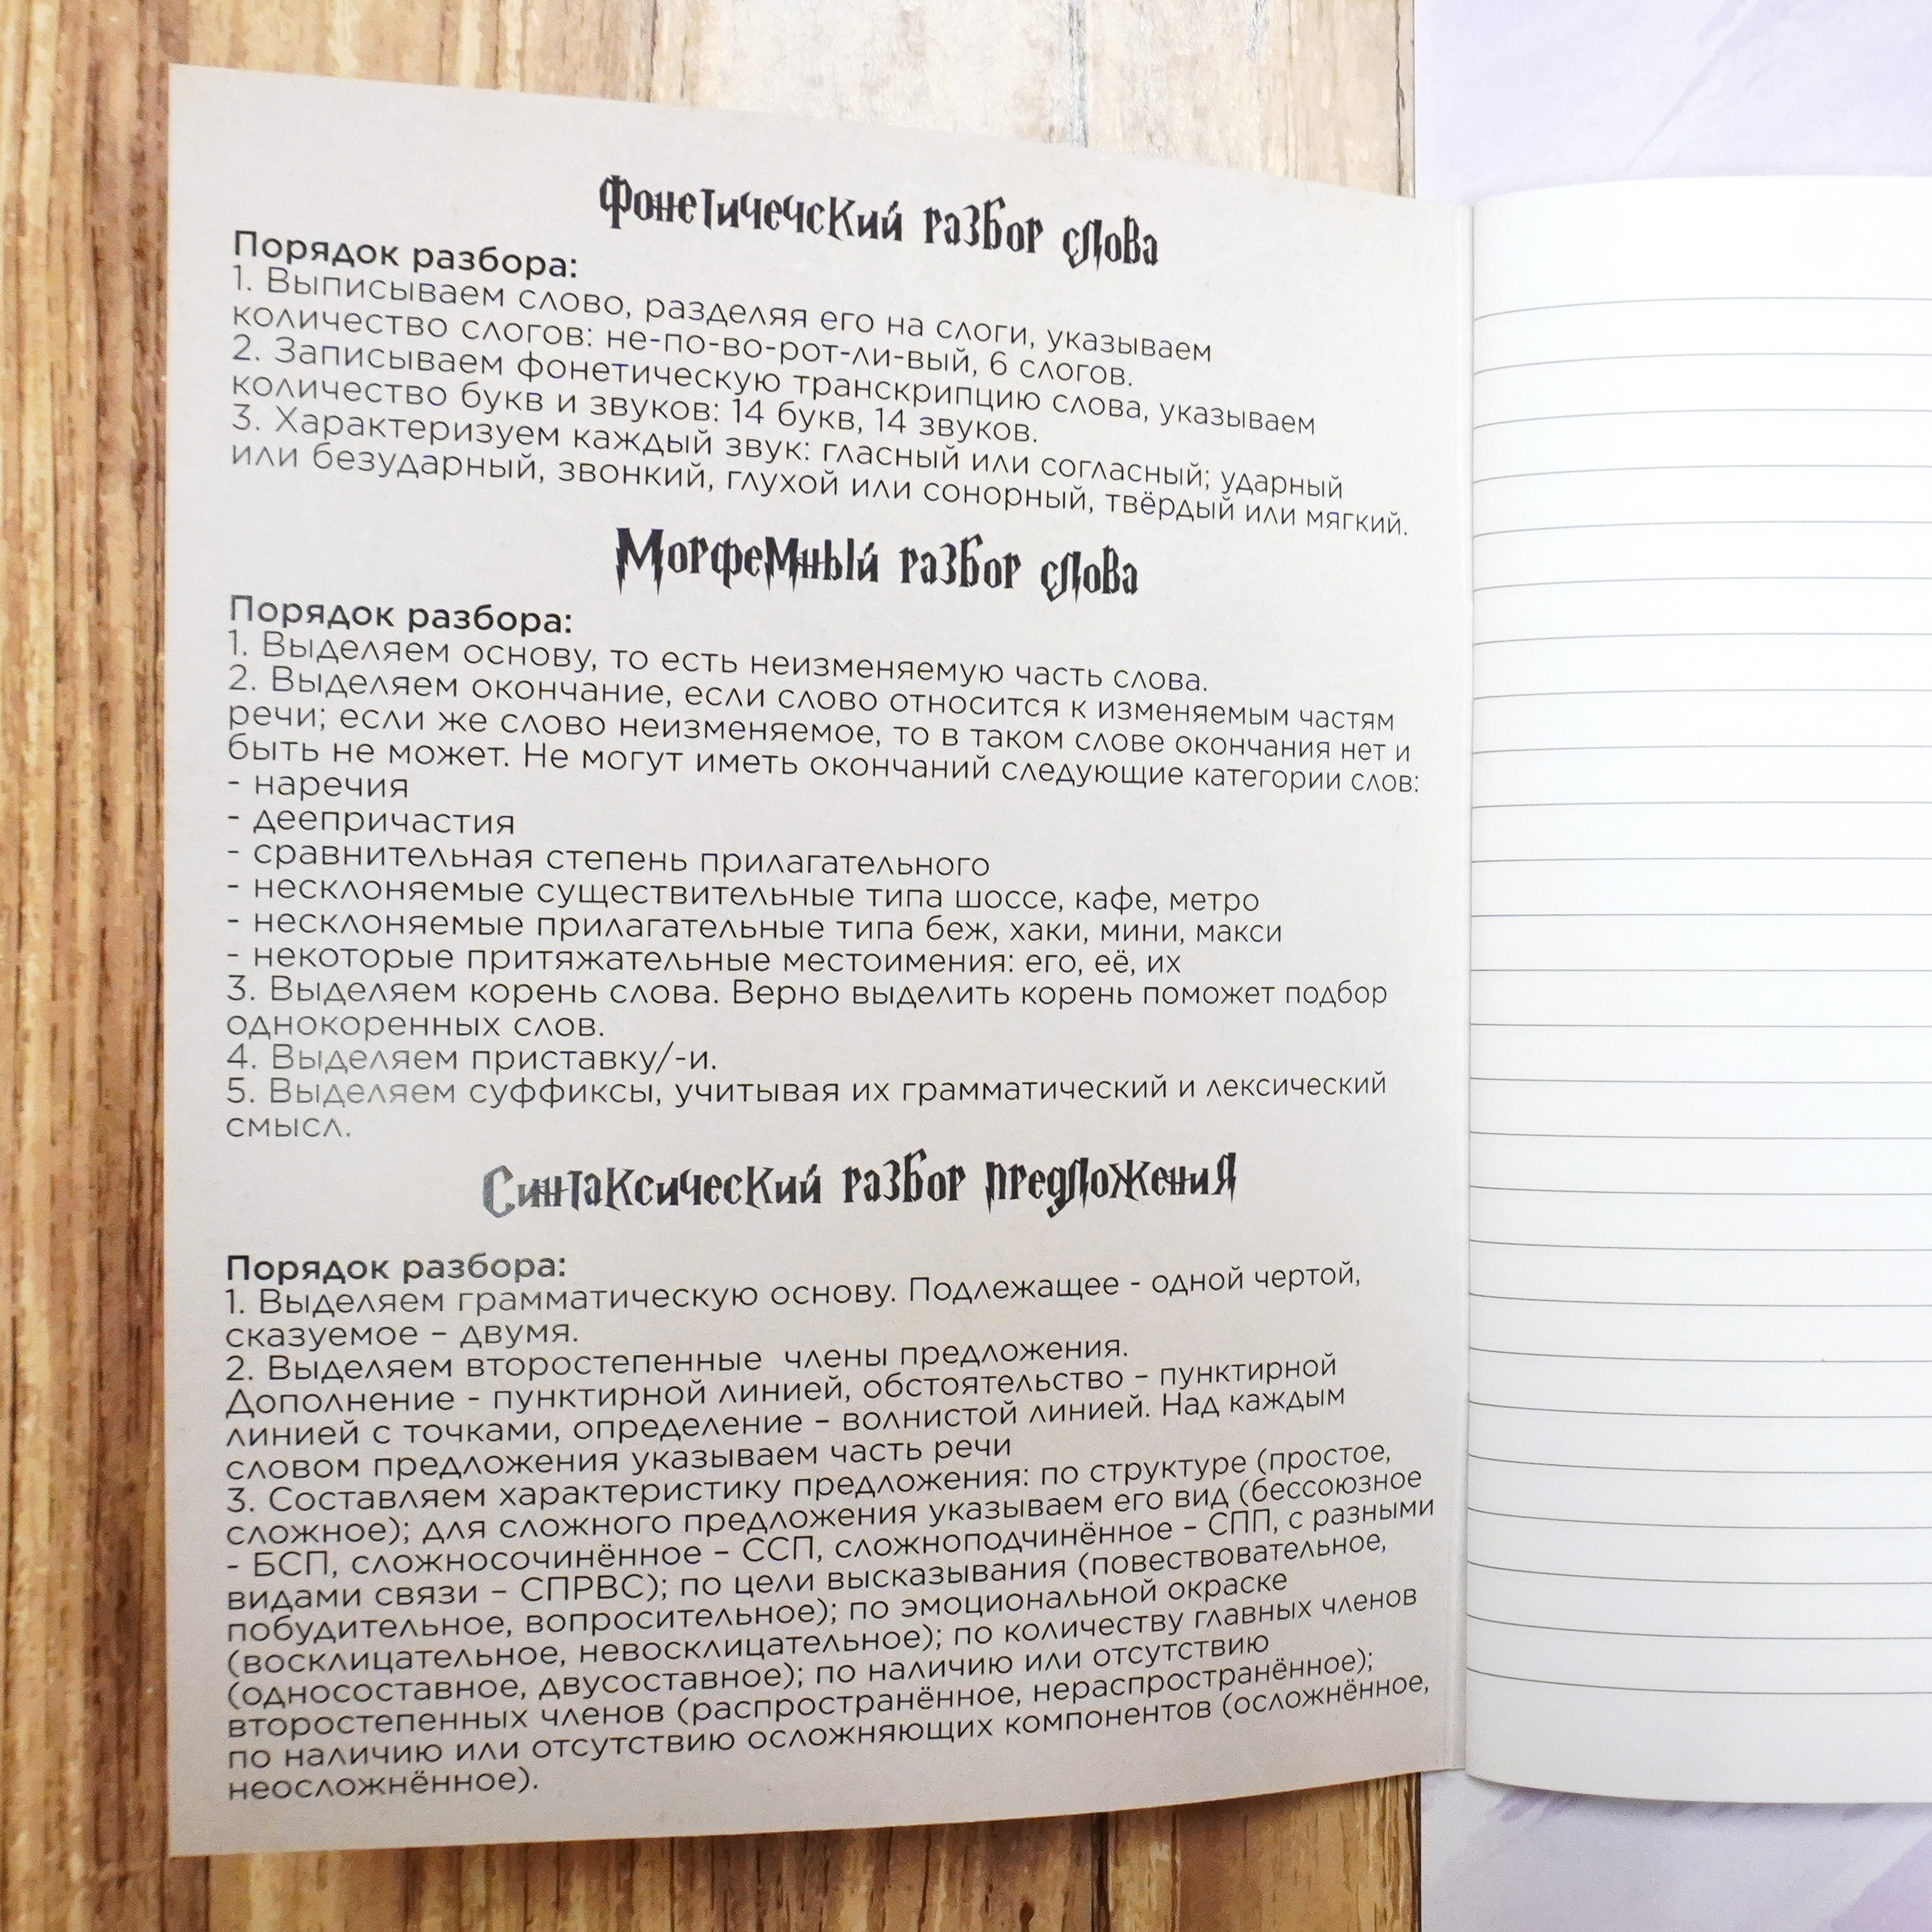 Фонетичечский разбор слова
Порядок разбора:
1. Выписываем слово, разделяя его на слоги, указываем
количество слогов: не-по-во-рот-ли-вый, 6 слогов.
2. Записываем фонетическую транскрипцию слова, указываем
количество букв и звуков: 14 букв, 14 звуков.
3. Характеризуем каждый звук: гласный или согласный; ударный
или безударный, звонкий, глухой или сонорный, твёрдый или мягкий.
Морфемный разбор слова
Порядок разбора:
1. Выделяем основу, то есть неизменяемую часть слова.
2. Выделяем окончание, если слово относится к изменяемым частям
речи; если же слово неизменяемое, то в таком слове окончания нет и
быть не может. Не могут иметь окончаний следующие категории слов:
- наречия
- деепричастия
- сравнительная степень прилагательного
- несклоняемые существительные типа шоссе, кафе, метро
- несклоняемые прилагательные типа беж, хаки, мини, макси
- некоторые притяжательные местоимения: его, её, их
3. Выделяем корень слова. Верно выделить корень поможет подбор
однокоренных слов.
4. Выделяем приставку/-и.
5. Выделяем суффиксы, учитывая их грамматический и лексический
смысл.
Синтаксический разбор предложения
Порядок разбора:
1. Выделяем грамматическую основу. Подлежащее - одной чертой,
сказуемое – двумя.
2. Выделяем второстепенные члены предложения.
Дополнение - пунктирной линией, обстоятельство – пунктирной
линией с точками, определение – волнистой линией. Над каждым
словом предложения указываем часть речи
3. Составляем характеристику предложения: по структуре (простое,
сложное); для сложного предложения указываем его вид (бессоюзное
- БСП, сложносочинённое – ССП, сложноподчинённое – СПП, с разными
видами связи – СПРВС); по цели высказывания (повествовательное,
побудительное, вопросительное); по эмоциональной окраске
(восклицательное, невосклицательное); по количеству главных членов
(односоставное, двусоставное); по наличию или отсутствию
второстепенных членов (распространённое, нераспространённое);
по наличию или отсутствию осложняющих компонентов (осложнённое,
неосложнённое).